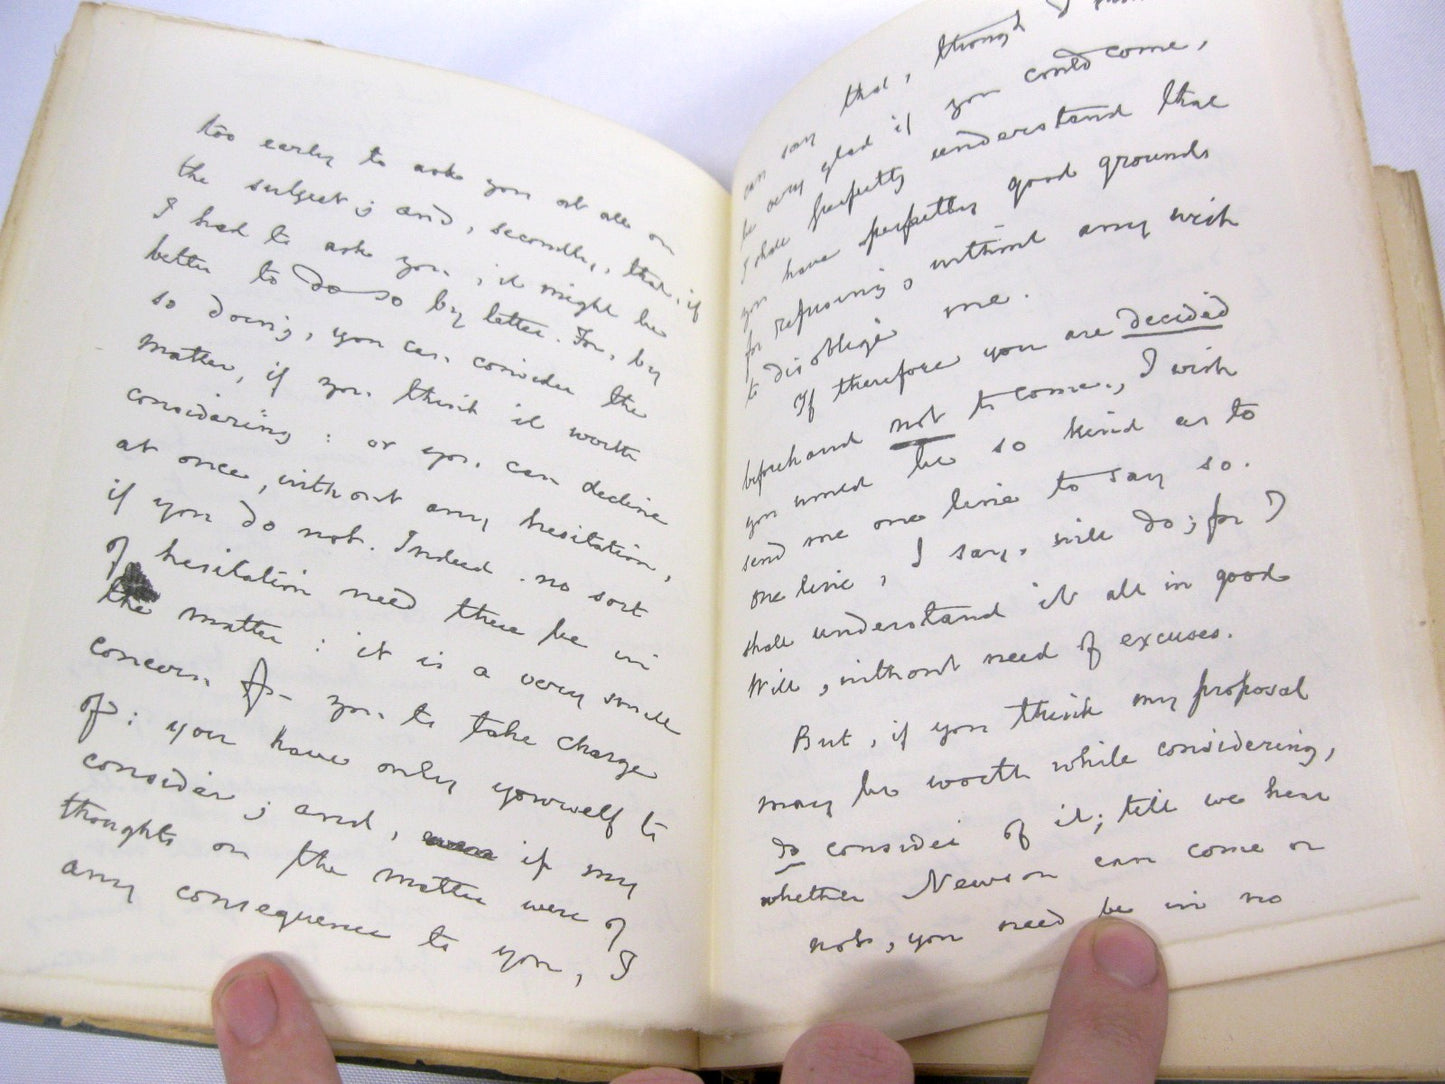 too early to ask you at all on
the subject; and, secondly, that, if
I had to ask you, it might be
better to do so by letter. For, by
so doing, you can consider the
matter, if you think it worth
considering: or you can decline
at once, without any hesitation,
if you do not. Indeed no sort
of hesitation need there be in
the matter: it is a very small
concern for you to take charge
of: you have only yourself to
consider; and, if my
thoughts on the matter were of
any consequence to you, I
can say that, though I
be very glad if you could come,
I shall perfectly understand that
you have perfectly good grounds
for refusing, without any wish
to disoblige me.
If therefore you are decided
beforehand not to come, I wish
you would be so kind as to
send me one line to say so.
one line, I say, will do; for I
shall understand it all in good
Will, without need of excuses.
But, if you think my proposal
may be worth while considering,
do consider of it; till we hear
whether Newson can come or
not, you need be in no